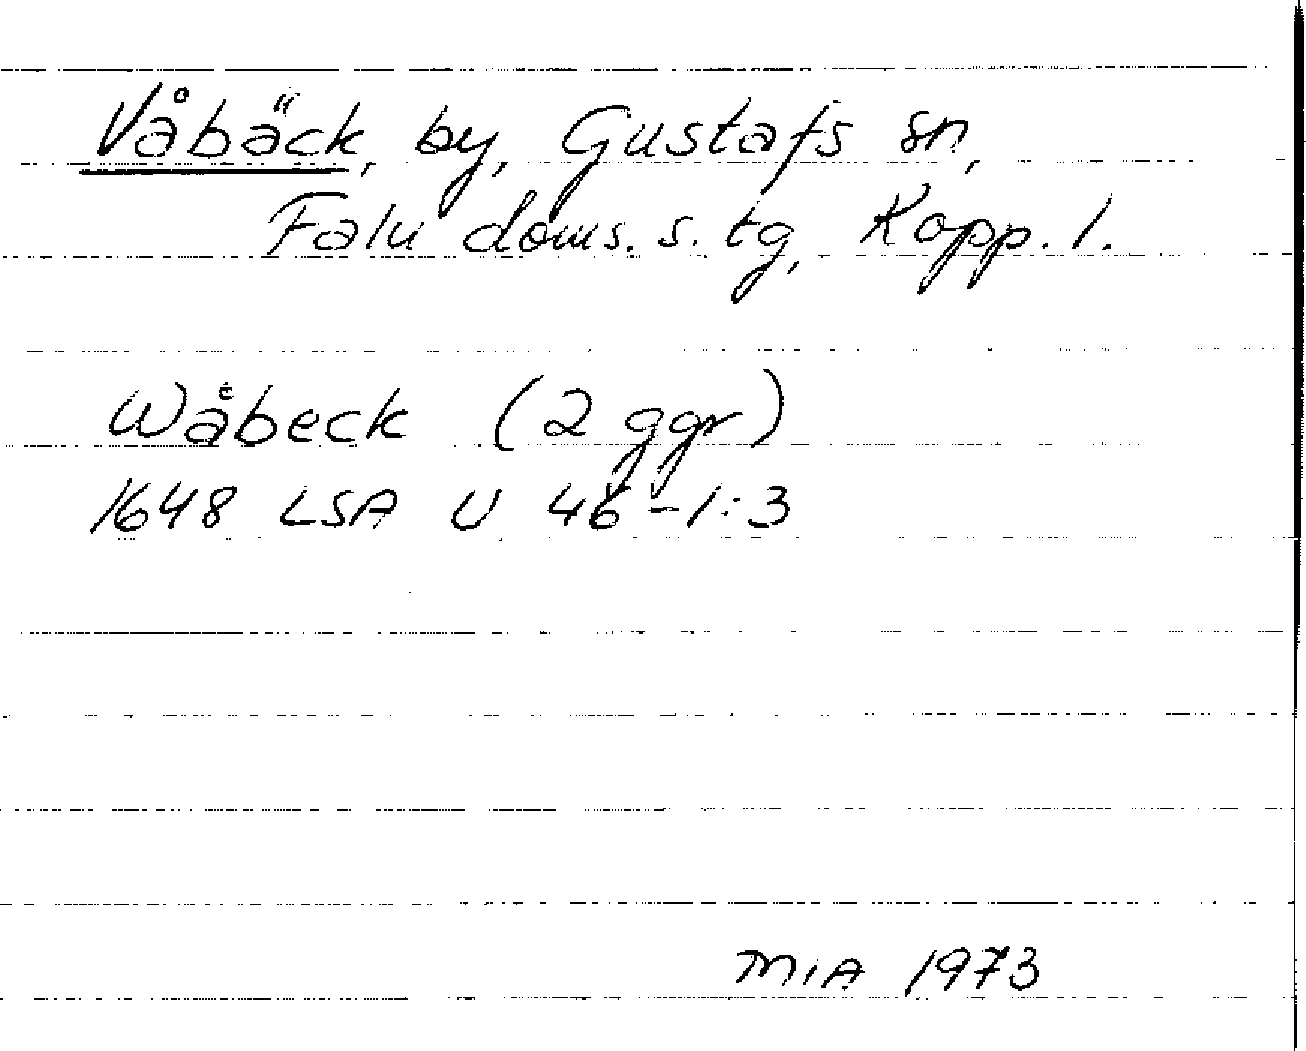 Våbäck, by, Gustafs sn,
Falu doms. s. tg, Kopp. l.
Wåbeck (2 ggr)
1648 LSA U 46-1:3
MIA 1973